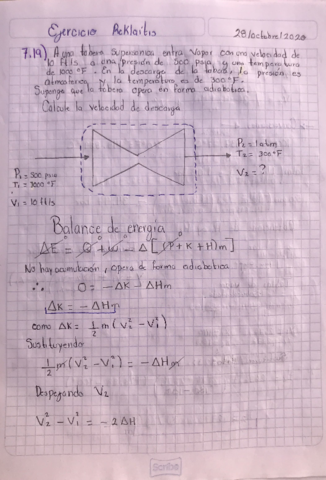 Ejercicio Reklaitis
29/octubre/2020
7.19) A una tobera supersónica entra vapor con una velocidad de
10 ft/s a una presión de 500 psia y una temperatura
de 1000 °F. En la descarga de la tobera, la presión es
atmosférica y la temperatura es de 300°F.
Suponga que la tobera opera en forma adiabática.
Calcule la velocidad de descarga
P1 = 500 psia
T1 = 1000 °F
V1 = 10 ft/s
P2 = 1 atm
T2 = 300°F
V2 = ?
Balance de energía
ΔE = Q + W - Δ[(P + K + H)m]
No hay acumulación, opera de forma adiabática
∴ 0 = -ΔK - ΔHm
ΔK = -ΔHm
como ΔK = 1/2 m (V2² - V1²)
Sustituyendo
1/2 m (V2² - V1²) = -ΔHm
Despejando V2
V2² - V1² = -2ΔH
Scribe